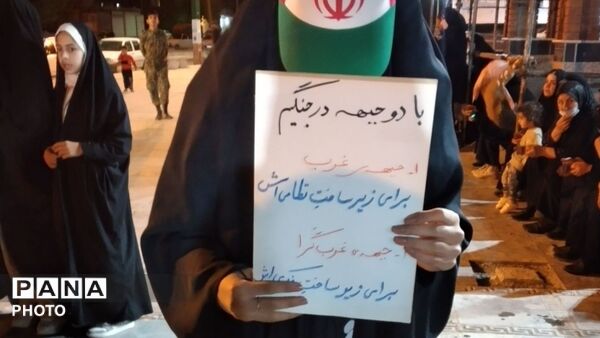 با دو جبهه در جنگیم
۱ـ جبهه ی غرب
برای زیر ساخت نظامی اش
۲ـ جبهه ی غرب گرا
برای زیر ساخت فکری اش
و
PANA
PHOTO